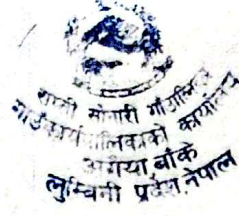 राप्ती सोनारी गाउँपालिका
गाउँ कार्यपालिकाको कार्यालय
अगैया बाँके
लुम्बिनी प्रदेश, नेपाल